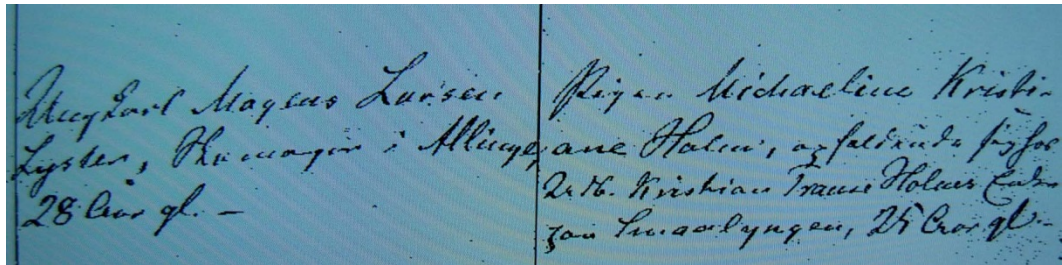 Ungkarl Magnus Larsen
Lyster, Skomager i Allinge,
28 Aar gl. –
Pigen Michaeline Kristi-
ane Holm, opholdende sig hos
Kristian Holms Enke
paa Smaalyngen, 25 Aar gl. –